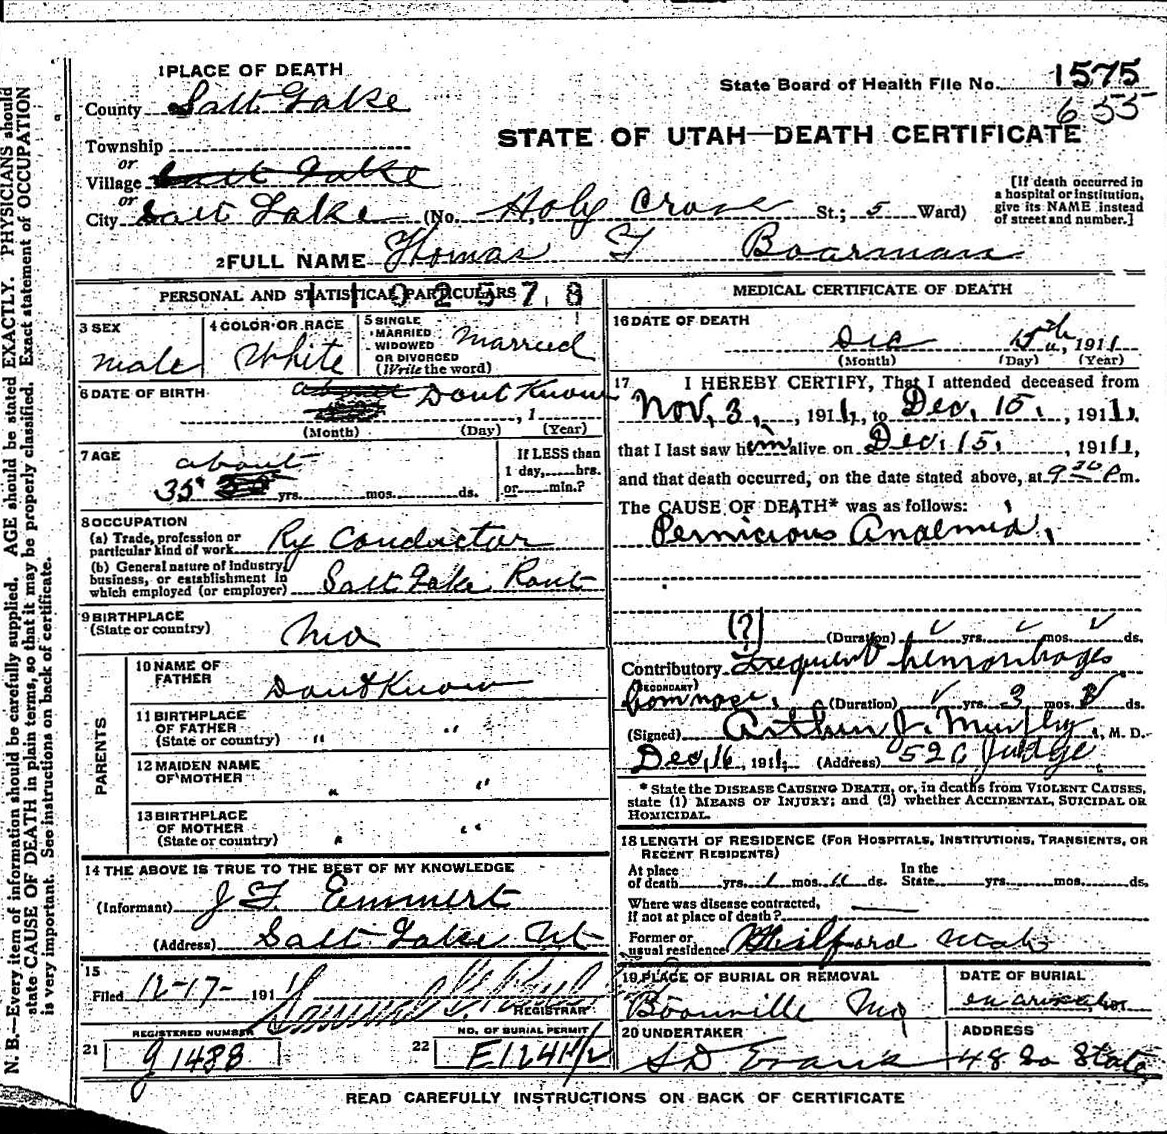 1 PLACE OF DEATH
State Board of Health File No. 1575
655
County Salt Lake
STATE OF UTAH—DEATH CERTIFICATE
Township
or
Village Salt Lake
or
City Salt Lake (No. Holy Cross St.; 5 Ward)
[If death occurred in
a hospital or institution,
give its NAME instead
of street and number.]
2 FULL NAME Thomas F Boarman
PERSONAL AND STATISTICAL PARTICULARS
1102578
3 SEX
male
4 COLOR OR RACE
White
5 SINGLE
MARRIED
WIDOWED
OR DIVORCED
(Write the word)
Married
6 DATE OF BIRTH about Dont Know
, 1
(Month) (Day) (Year)
7 AGE
about
35 yrs. mos. ds.
If LESS than
1 day, hrs.
or min.?
8 OCCUPATION
(a) Trade, profession or
particular kind of work Ry Conductor
(b) General nature of industry,
business, or establishment in
which employed (or employer) Salt Lake Rout
9 BIRTHPLACE
(State or country)
Mo
PARENTS
10 NAME OF
FATHER
Dont Know
11 BIRTHPLACE
OF FATHER
(State or country) " "
12 MAIDEN NAME
OF MOTHER
" "
13 BIRTHPLACE
OF MOTHER
(State or country) " "
14 THE ABOVE IS TRUE TO THE BEST OF MY KNOWLEDGE
(Informant) J F Emmert
(Address) Salt Lake Ut
15
Filed 12-17- 1911
REGISTRAR
REGISTERED NUMBER
21 g1488
NO. OF BURIAL PERMIT
22 E1241 1/2
MEDICAL CERTIFICATE OF DEATH
16 DATE OF DEATH
Dec 15th, 1911
(Month) (Day) (Year)
17 I HEREBY CERTIFY, That I attended deceased from
Nov. 3, 1911, to Dec. 15, 1911,
that I last saw him alive on Dec. 15, 1911,
and that death occurred, on the date stated above, at 9 30 P m.
The CAUSE OF DEATH* was as follows:
Pernicious Anaemia,
(?) (Duration) yrs. mos. ds.
Contributory Frequent hemorrhages
(SECONDARY)
from nose, (Duration) yrs. 3 mos. ds.
(Signed) Arthur J. Murphy, M. D.
Dec. 16, 1911 (Address) 526 Judge
* State the DISEASE CAUSING DEATH, or, in deaths from VIOLENT CAUSES,
state (1) MEANS OF INJURY; and (2) whether ACCIDENTAL, SUICIDAL OR
HOMICIDAL.
18 LENGTH OF RESIDENCE (FOR HOSPITALS, INSTITUTIONS, TRANSIENTS, OR
RECENT RESIDENTS)
At place
of death yrs. 1 mos. 11 ds.
In the
State yrs. mos. ds.
Where was disease contracted,
if not at place of death?
Former or
usual residence Milford Utah
19 PLACE OF BURIAL OR REMOVAL
Boonville Mo
DATE OF BURIAL
on arrival
20 UNDERTAKER
S D Evans
ADDRESS
48 So State
READ CAREFULLY INSTRUCTIONS ON BACK OF CERTIFICATE
N. B.—Every item of information should be carefully supplied. AGE should be stated EXACTLY. PHYSICIANS should
state CAUSE OF DEATH in plain terms, so that it may be properly classified. Exact statement of OCCUPATION
is very important. See instructions on back of certificate.